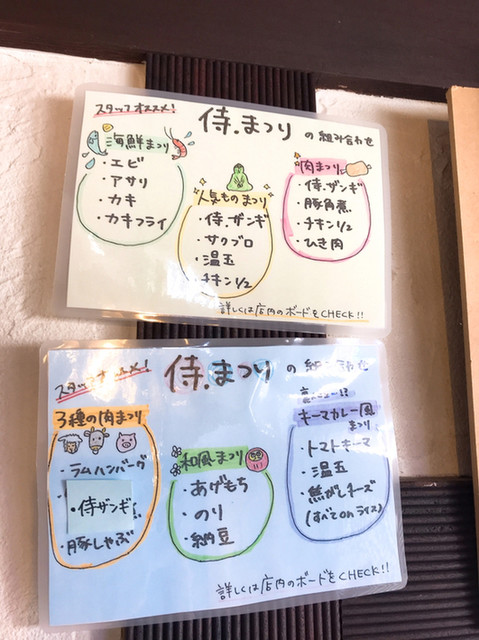 スタッフオススメ!
侍.まつりの組み合わせ
海鮮まつり
・エビ
・アサリ
・カキ
・カキフライ
人気ものまつり
・侍.ザンギ
・サクブロ
・温玉
・チキン1/2
肉まつり
・侍.ザンギ
・豚角煮
・チキン1/2
・ひき肉
詳しくは店内のボードをCHECK!!
スタッフオススメ!
侍.まつりの組み合わせ
3種の肉まつり
・ラムハンバーグ
・侍ザンギ
・豚しゃぶ
和風まつり
・あげもち
・のり
・納豆
裏メニュー!?
キーマカレー風
まつり
・トマトキーマ
・温玉
・焦がしチーズ
(すべてonライス)
詳しくは店内のボードをCHECK!!